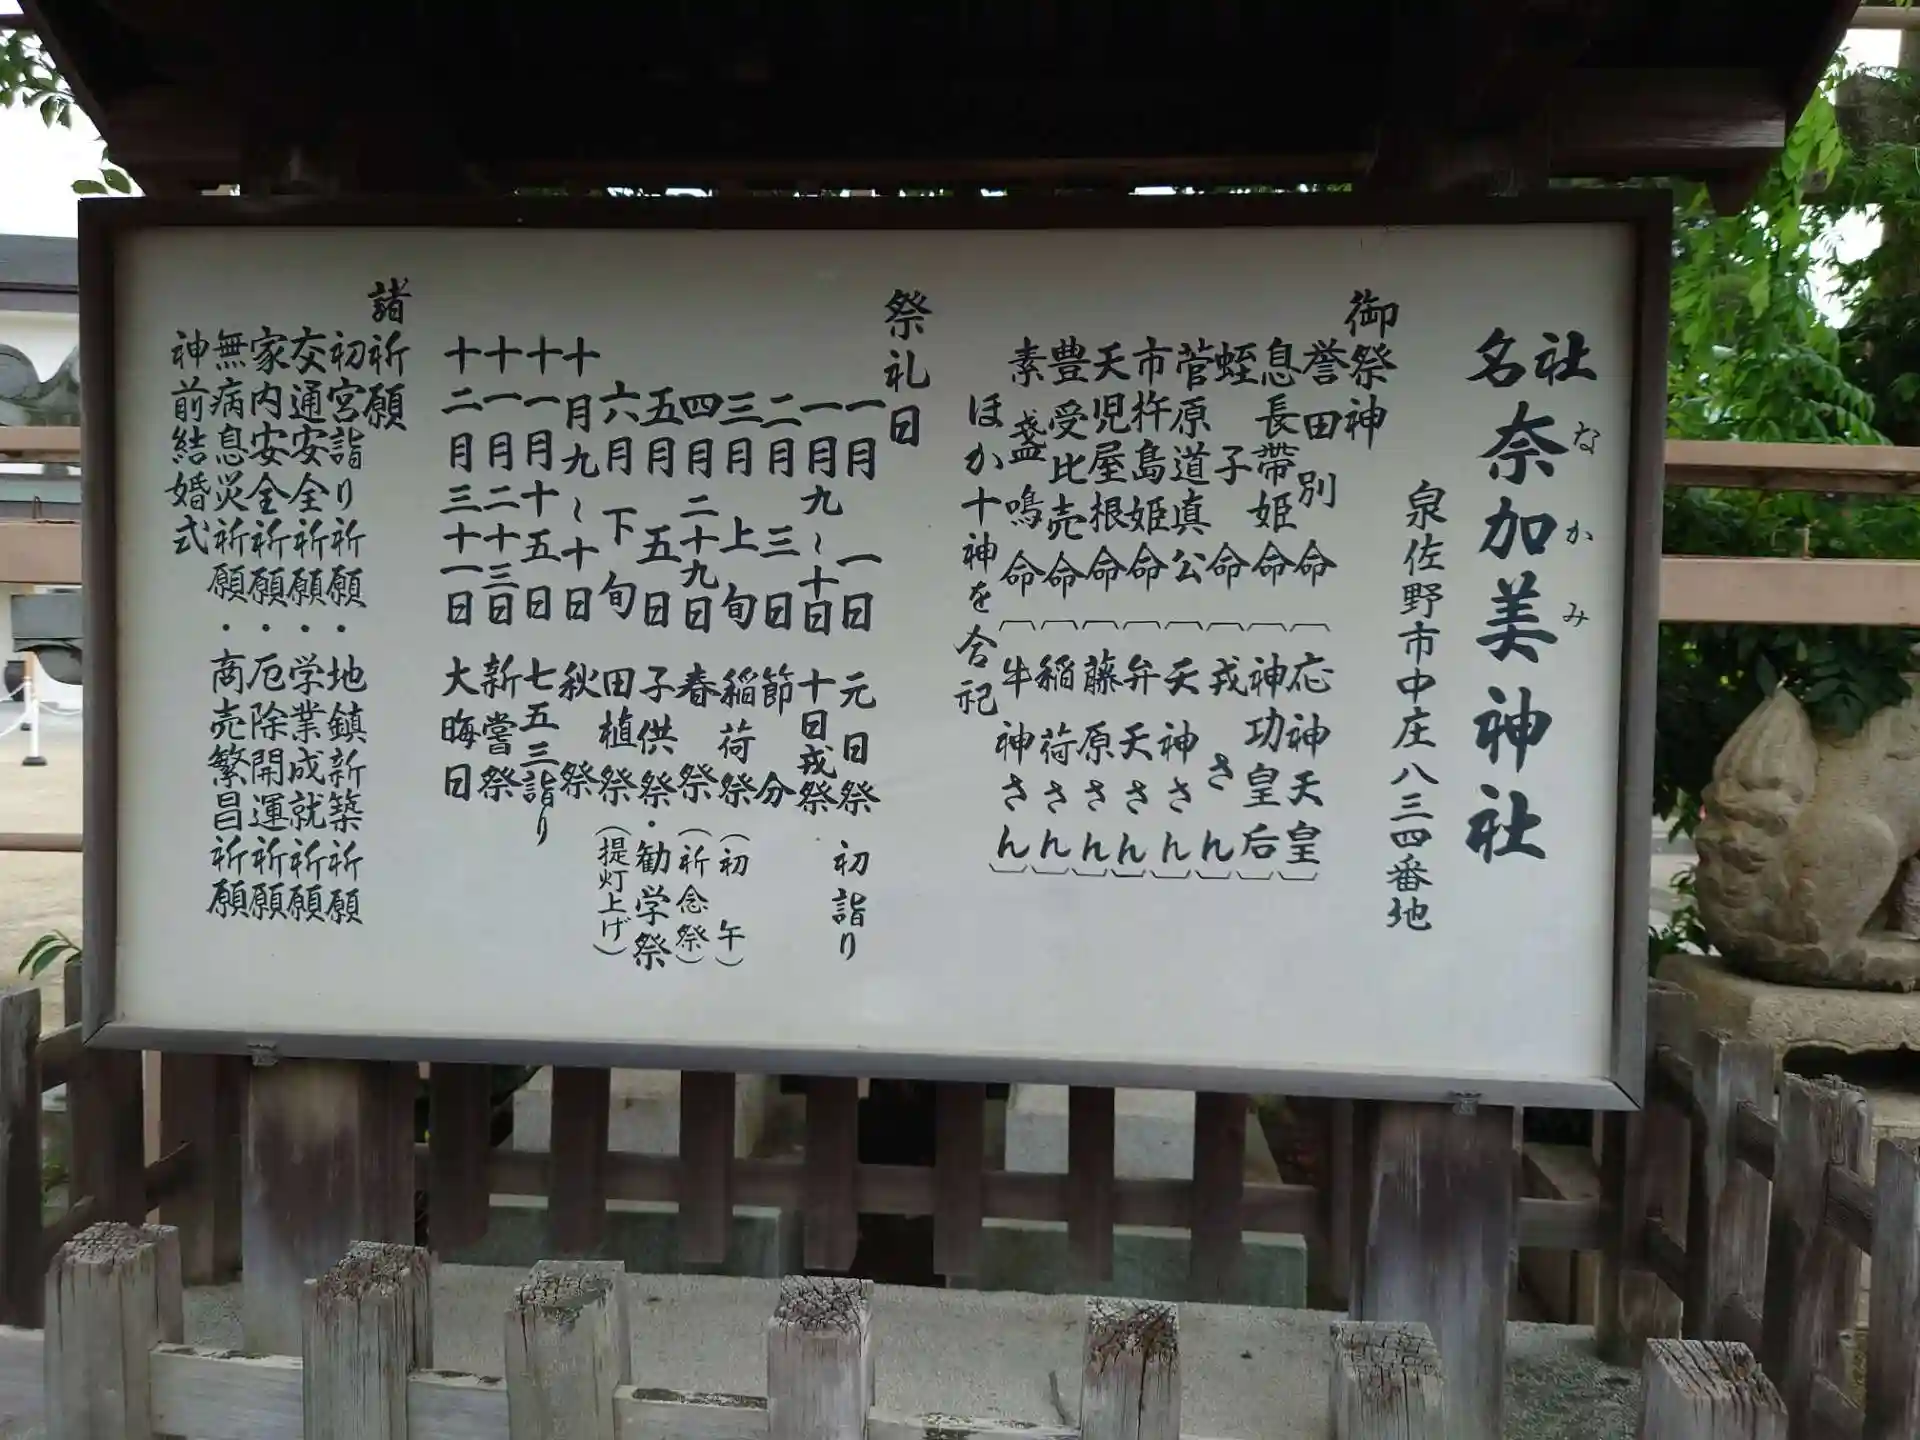 名社
奈加美神社
なかみ
泉佐野市中庄八三四番地
御祭神
誉田別命（応神天皇）
息長帯姫命（神功皇后）
蛭子命（戎さん）
菅原道真公（天神さん）
市杵島姫命（弁天さん）
天児屋根命（藤原さん）
豊受比売命（稲荷さん）
素盞鳴命（牛神さん）
ほか十神を合祀
祭礼日
一月一日 元日祭 初詣り
一月九～十日 十日戎祭
二月三日 節分
三月上旬 稲荷祭（初午）
四月二十九日 春祭（祈念祭）
五月五日 子供祭・勧学祭
六月下旬 田植祭（提灯上げ）
十月九～十日 秋祭
十一月十五日 七五三詣り
十一月二十三日 新嘗祭
十二月三十一日 大晦日
諸祈願
初宮詣り祈願・地鎮新築祈願
交通安全祈願・学業成就祈願
家内安全祈願・厄除開運祈願
無病息災祈願・商売繁昌祈願
神前結婚式